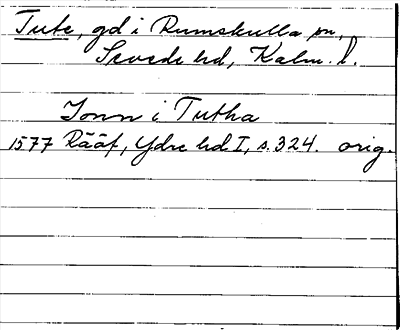 Tute, gd i Rumskulla sn,
Sevede hd, Kalm. l.
Jonn i Tutha
1577 Rääf, Ydre hd I, s. 324. orig.